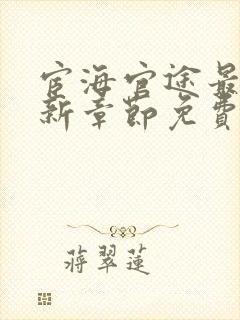 宦海官途最
新章節免費
蔣翠蓮